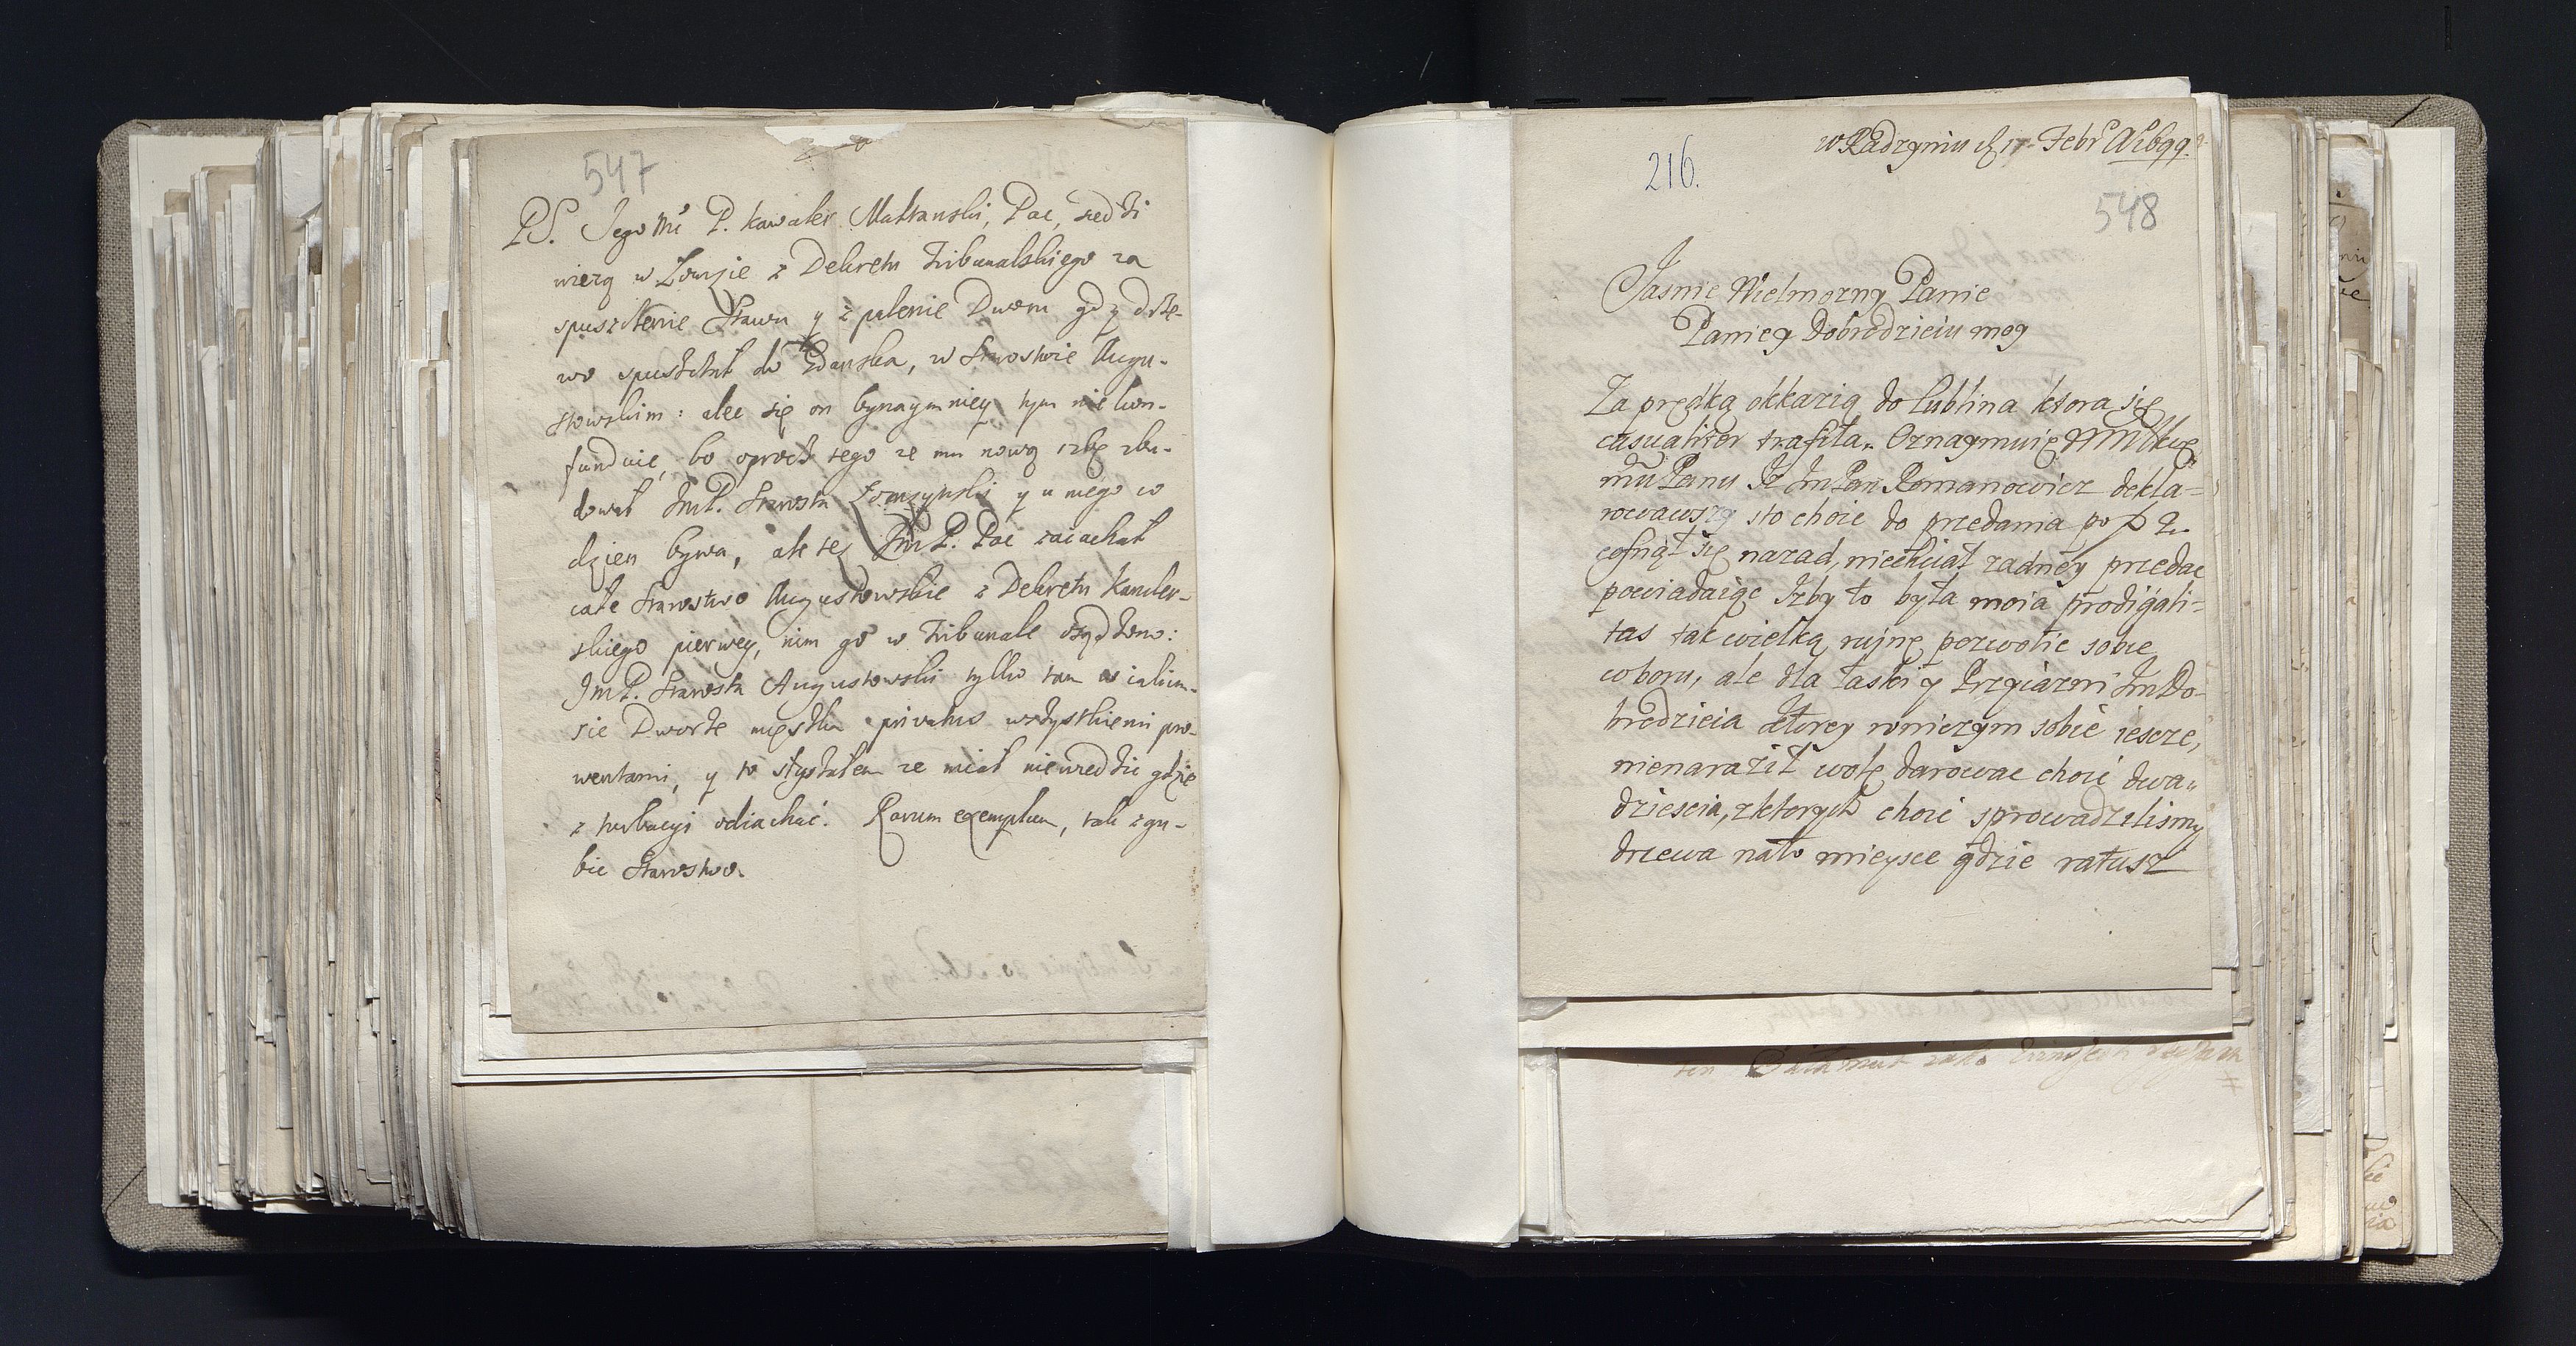 547
PS. Jego Mć P. kawaler Maltanski, Pac, siedzi
wiezą w Łomzie z Dekretu Tribunalskiego za
spuszczenie Stawu y spalenie Dworu gdy drze-
wo spuszczał do Gdanska, w Starostwie Augu-
stowskim: ale się on bynaymniey tym nie kon-
funduie, bo oprocz tego ze mu nową izbę zbu-
dował ImP. Starosta Łomzynski y u niego co
dzien bywa, ale tez ImP. Pac zaiachał
całe Starostwo Augustowskie z Dekretu Kancler-
skiego pierwey, nim go w Tribunale osądzono:
ImP. Starosta Augustowski tylko tam w iakim-
sie Dworze mieszka privatus wszystkiemi pro-
wentami, y to słyszałem ze miał niewiedziec gdzie
z turbacyi odiachać. Rarum exemplum, tak zgu-
bic Starostwo.
216.
w Radzyniu d 17 Febr A 1699.
548
Jasnie Wielmozny Panie
Panie y Dobrodzieiu moy
Za prędką okkazią do Lublina ktora się
casualiter trafiła. Oznaymuię WMMkę
mu Panu Iz ImPan Romanowicz dekla=
rowawszy sto choie do przedania po
cofnął się nazad, niechciał zadney przedac
powiadaiąc Izby to była moia prodigali=
tas tak wielką ruinę pozwolic sobie
w boru, ale dla łaski y Przyiazni ImDo-
brodzieia ktorey wniczym sobie ieszcze,
nienaraził wolę darowac choie dwa„
dziescia, z ktorych choie sprowadzilismy
drzewa na to mieysce gdzie ratusz